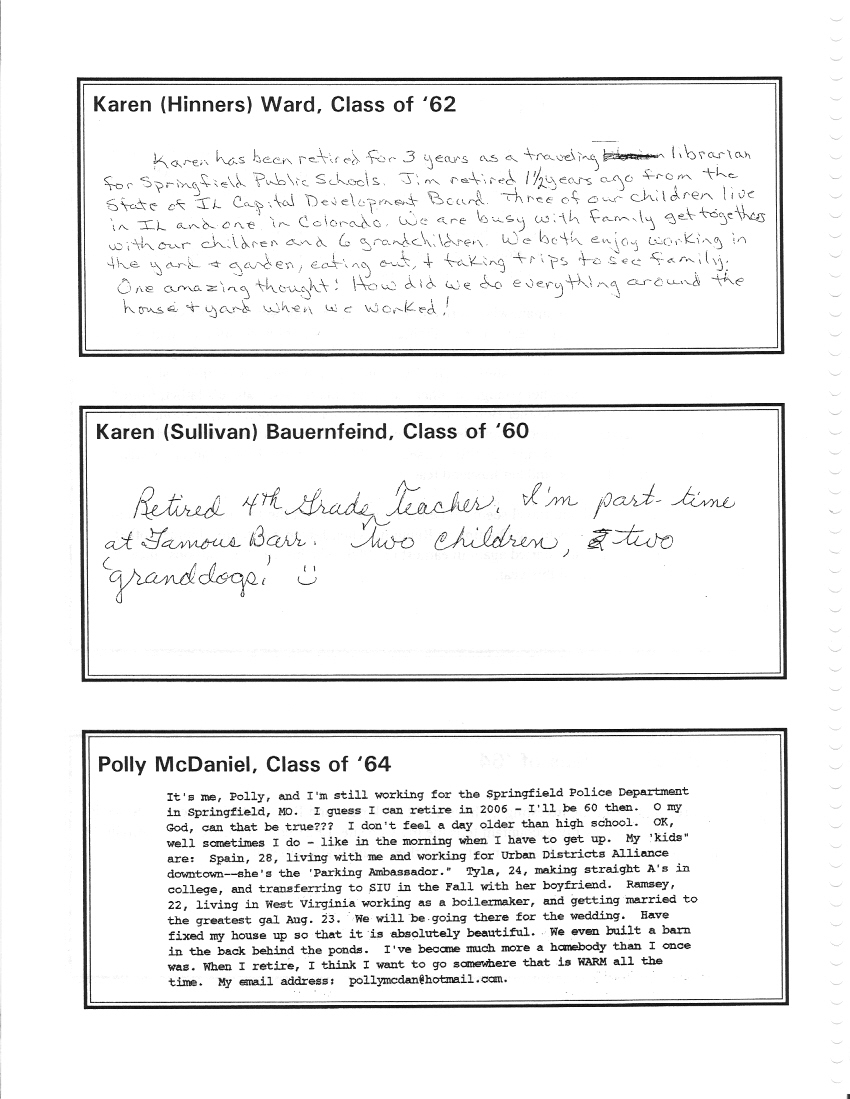 Karen (Hinners) Ward, Class of ‘62
Karen has been retired for 3 years as a traveling librarian
for Springfield Public Schools. Jim retired 1½ years ago from the
State of IL Capital Development Board. Three of our children live
in IL and one in Colorado. We are busy with family get togethers
with our children and 6 grandchildren. We both enjoy working in
the yard + garden, eating out, + taking trips to see family.
One amazing thought! How did we do everything around the
house + yard when we worked!
Karen (Sullivan) Bauernfeind, Class of ‘60
Retired 4th Grade Teacher. I'm part-time
at Famous Barr. Two children, & two
'granddogs'! :)
Polly McDaniel, Class of ‘64
It's me, Polly, and I'm still working for the Springfield Police Department
in Springfield, MO. I guess I can retire in 2006 - I'll be 60 then. O my
God, can that be true??? I don't feel a day older than high school. OK,
well sometimes I do - like in the morning when I have to get up. My 'kids"
are: Spain, 28, living with me and working for Urban Districts Alliance
downtown--she's the 'Parking Ambassador." Tyla, 24, making straight A's in
college, and transferring to SIU in the Fall with her boyfriend. Ramsey,
22, living in West Virginia working as a boilermaker, and getting married to
the greatest gal Aug. 23. We will be going there for the wedding. Have
fixed my house up so that it is absolutely beautiful. We even built a barn
in the back behind the ponds. I've become much more a homebody than I once
was. When I retire, I think I want to go somewhere that is WARM all the
time. My email address: pollymcdan@hotmail.com.